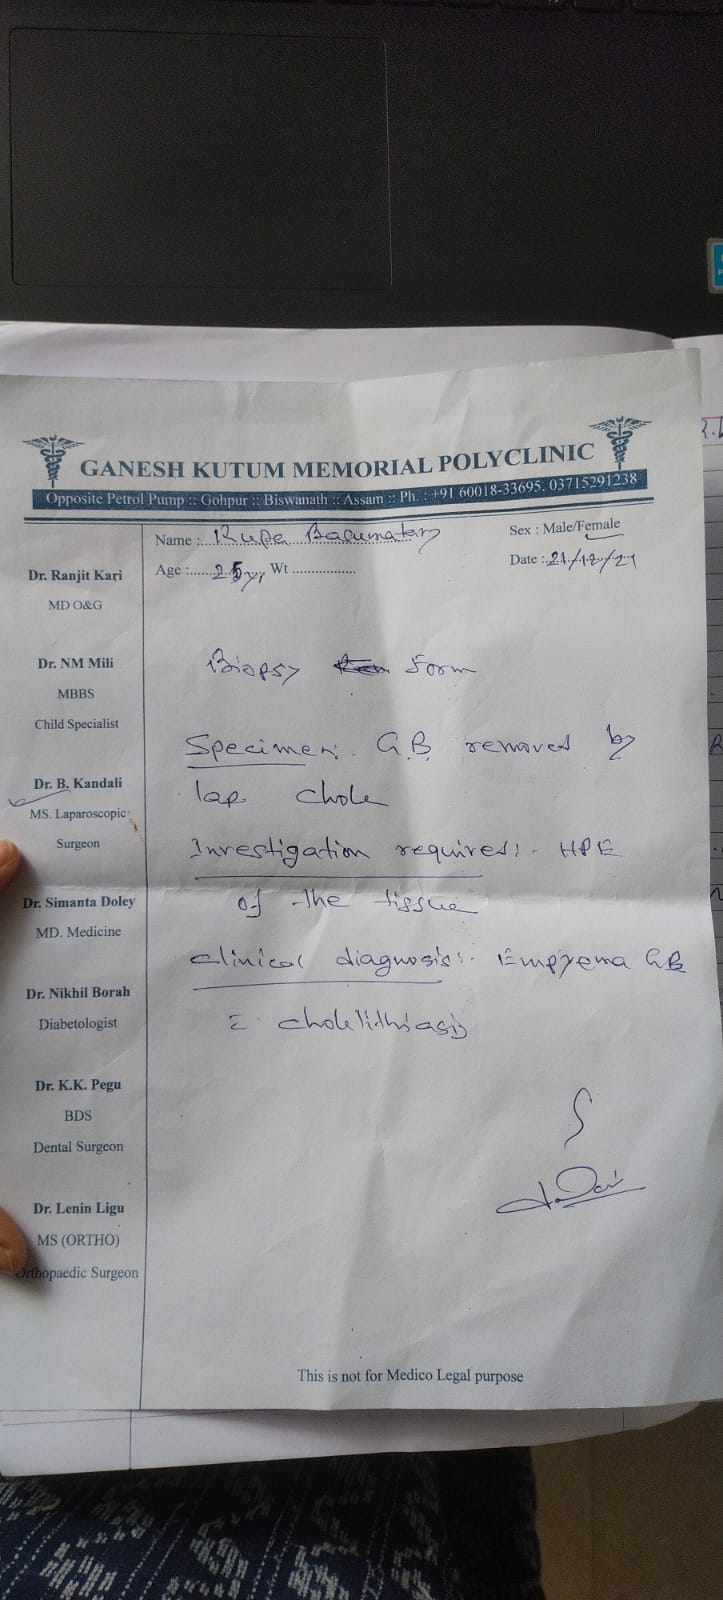 GANESH KUTUM MEMORIAL POLYCLINIC
Opposite Petrol Pump :: Gohpur :: Biswanath :: Assam :: Ph. : +91 60018-33695. 03715291238
Name : Rupa Basumatary
Sex : Male/Female
Age : 25 yr, Wt
Date :
Dr. Ranjit Kari
MD O&G
Dr. NM Mili
MBBS
Child Specialist
Dr. B. Kandali
MS. Laparoscopic
Surgeon
Dr. Simanta Doley
MD. Medicine
Dr. Nikhil Borah
Diabetologist
Dr. K.K. Pegu
BDS
Dental Surgeon
Dr. Lenin Ligu
MS (ORTHO)
Orthopaedic Surgeon
Biopsy Form
Specimen: G.B. removed by
lap chole
Investigation required:- HPE
of the tissue
Clinical diagnosis:- Empyema GB
c cholelithiasis
This is not for Medico Legal purpose